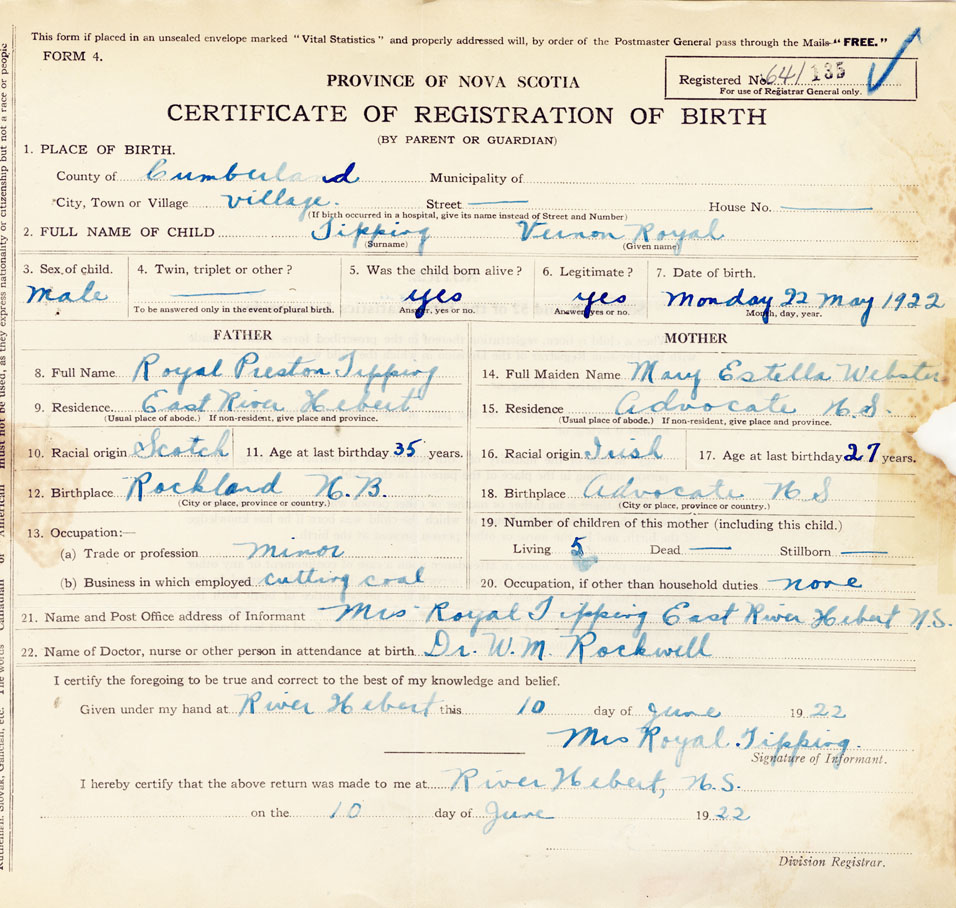 This form if placed in an unsealed envelope marked "Vital Statistics" and properly addressed will, by order of the Postmaster General pass through the Mails "FREE."
FORM 4.
PROVINCE OF NOVA SCOTIA
Registered No. 641135
For use of Registrar General only.
CERTIFICATE OF REGISTRATION OF BIRTH
(BY PARENT OR GUARDIAN)
1. PLACE OF BIRTH.
County of Cumberland Municipality of
City, Town or Village village. Street — House No. —
(If birth occurred in a hospital, give its name instead of Street and Number)
2. FULL NAME OF CHILD Tipping Vernon Royal
(Surname) (Given name)
3. Sex of child. 4. Twin, triplet or other? 5. Was the child born alive? 6. Legitimate? 7. Date of birth.
Male — yes yes Monday 22 May 1922
To be answered only in the event of plural birth. Answer, yes or no. Answer yes or no. Month, day, year.
FATHER MOTHER
8. Full Name Royal Preston Tipping 14. Full Maiden Name Mary Estella Webster
9. Residence. East River Hebert 15. Residence Advocate N.S.
(Usual place of abode.) If non-resident, give place and province. (Usual place of abode.) If non-resident, give place and province.
10. Racial origin Scotch 11. Age at last birthday 35 years. 16. Racial origin Irish 17. Age at last birthday 27 years.
12. Birthplace Rockland N.B. 18. Birthplace Advocate N S
(City or place, province or country.) (City or place, province or country.)
13. Occupation:— 19. Number of children of this mother (including this child.)
(a) Trade or profession minor Living 5 Dead — Stillborn —
(b) Business in which employed cutting coal 20. Occupation, if other than household duties none
21. Name and Post Office address of Informant Mrs Royal Tipping East River Hebert N.S.
22. Name of Doctor, nurse or other person in attendance at birth Dr. W. M. Rockwell
I certify the foregoing to be true and correct to the best of my knowledge and belief.
Given under my hand at River Hebert this 10 day of June 1922
Mrs Royal Tipping.
Signature of Informant.
I hereby certify that the above return was made to me at River Hebert, N.S.
on the 10 day of June 1922
Division Registrar.
must not be used, as they express nationality or citizenship but not a race or people